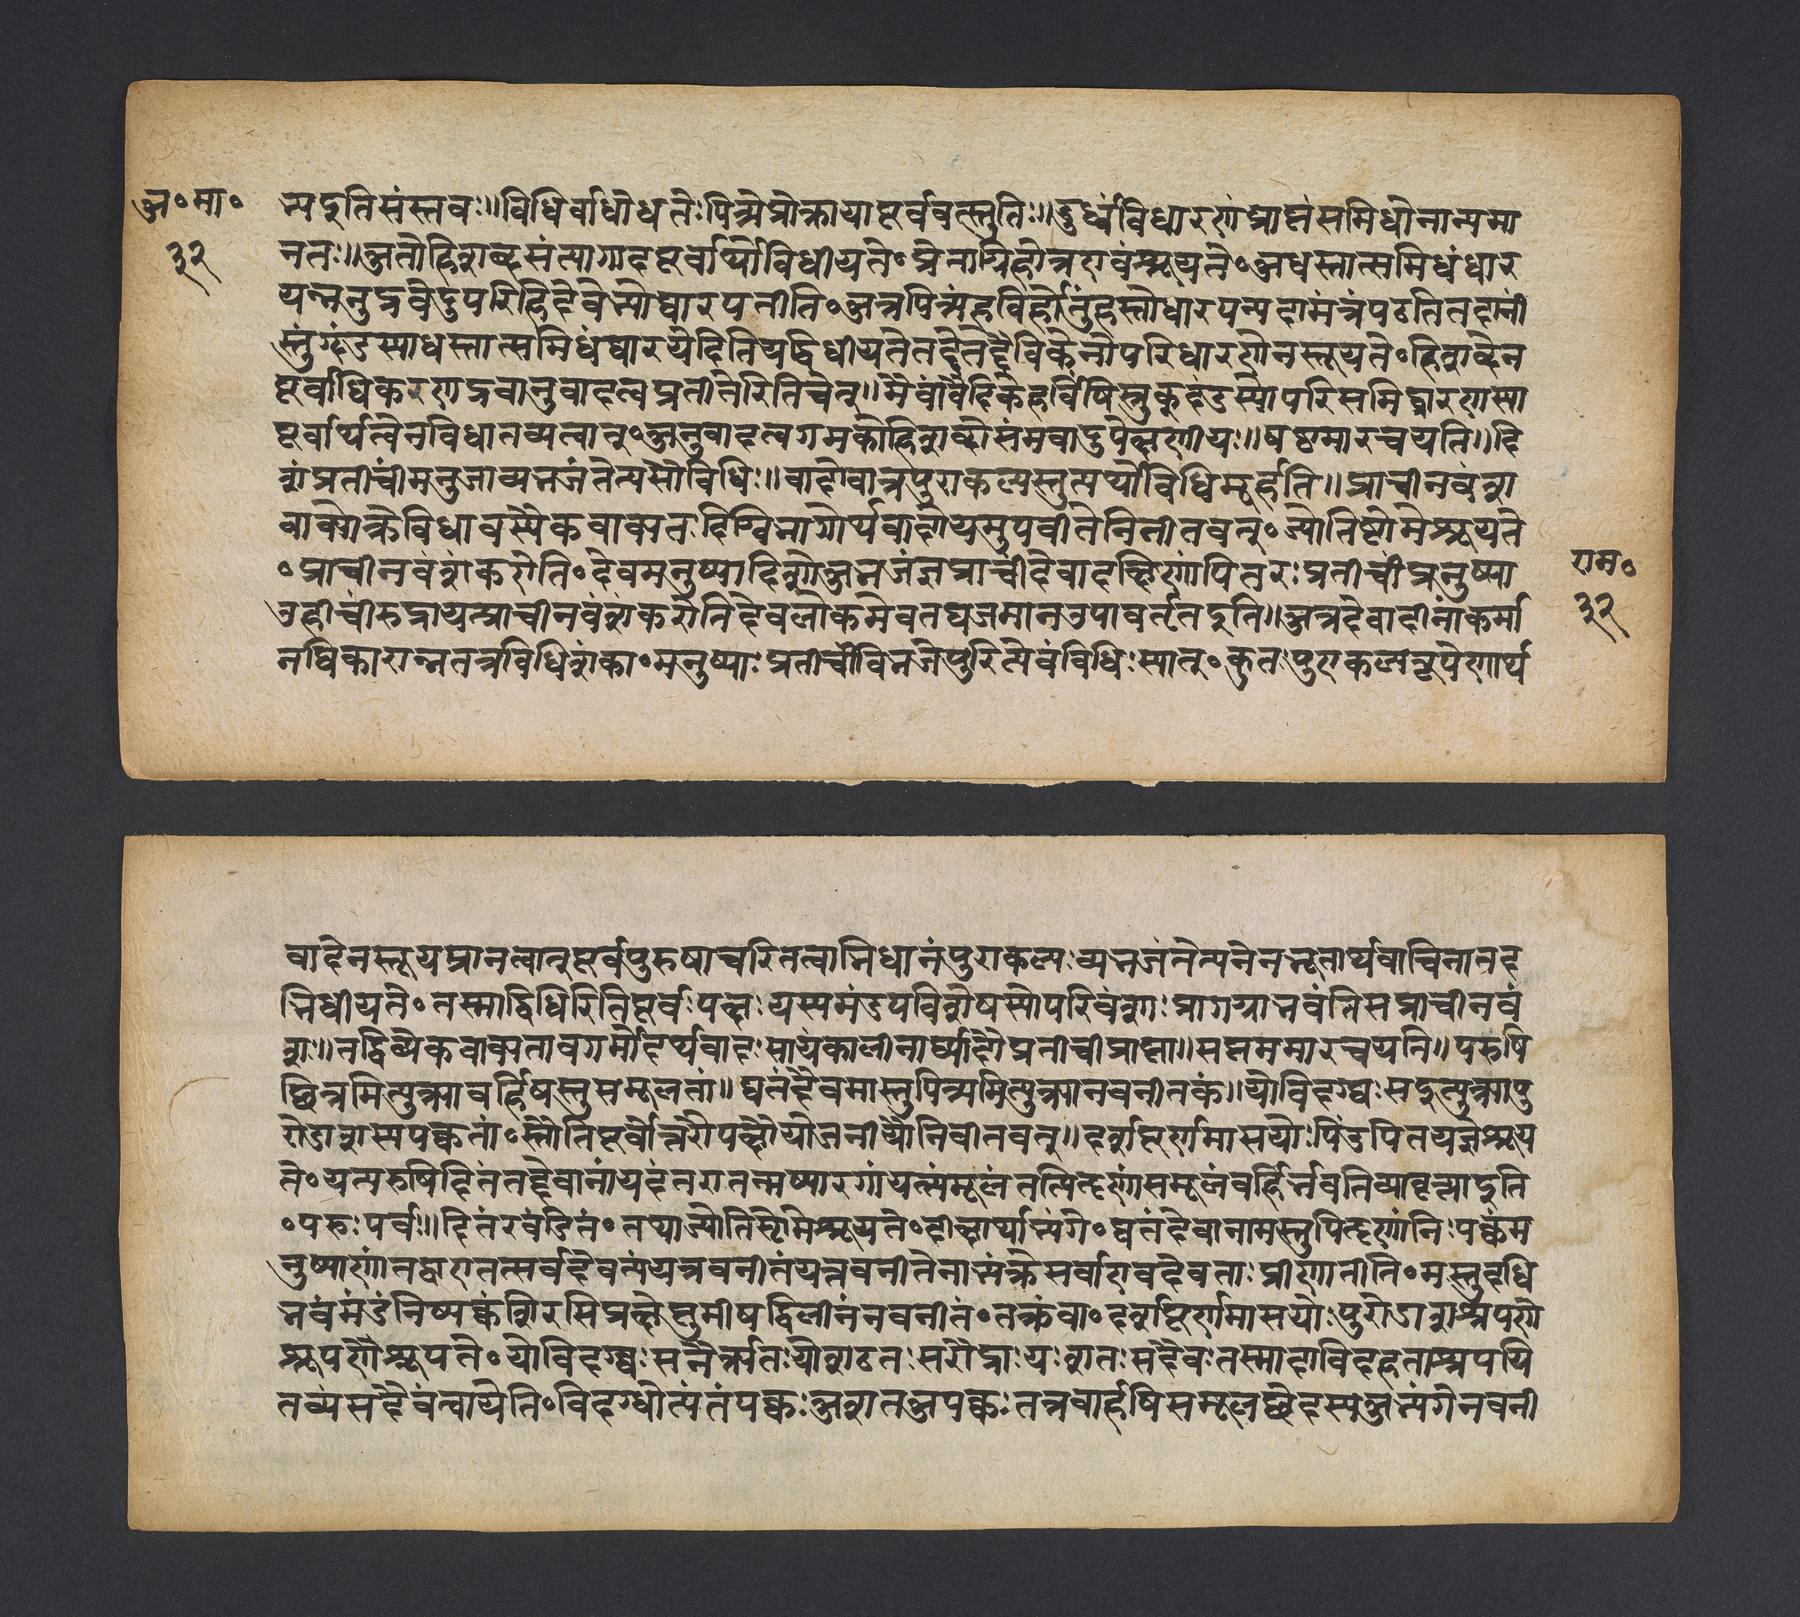 अ॰ मा॰
३२
त्यद्रुतिसंस्तवः॥विधिर्वाधोधृतेःपित्र्येप्रोक्तायापूर्ववत्स्तुतिः॥दूर्ध्वंविधारणंप्राप्तंसमिधोनान्यमा
नतः॥अतोहिशब्दसंत्यागादपूर्वार्थोविधीयते॰प्रेताग्निहोत्रएवंश्रूयते॰अधस्तात्समिधंधार
यन्ननुद्रवेदुपरिहिदेवेभ्योधारयतीति॰अत्रपित्र्यंहविर्होतुंहस्तोधारयन्यदामंत्रंपठतितदानीं
स्रुग्दंडस्याधस्तात्समिधंधारयेदितियद्विधीयतेतद्वैतद्दैविकेनोपरिधारणेनस्तूयते॰हिशब्देन
पूर्वाधिकरणवदनुवादत्वप्रतीतेरितिचेत्॥मैवंदैविकेहविषिस्रुग्दंडस्योपरिसमिद्धारणस्या
पूर्वार्थत्वेनविधातव्यत्वात्॰अनुवादत्वगमकोहिशब्दोसंभवादुपेक्षणीयः॥षष्ठमारचयति॥दि
शंप्रतीचींमनुजाव्यभजंतेत्यसौविधिः॥वादोवात्रपुराकल्पस्तुत्यर्थोविधिमर्हति॥प्राचीनवंश
वाक्योक्तेविधावस्यैकवाक्यतःदिग्विभागोर्थवादोयमुपवीतेनिवीतवत्॰ज्योतिष्टोमेश्रूयते
॰प्राचीनवंशंकरोति॰देवमनुष्यादिशोव्यभजंतप्राचींदेवादक्षिणांपितरःप्रतीचींमनुष्या
उदीचींरुद्रायत्प्राचीनवंशंकरोतिदेवलोकमेवतद्यजमानउपावर्ततइति॥अत्रदेवादीनांकर्मा
नधिकारान्नतत्रविधिशंका॰मनुष्याःप्रतीचींविभजेयुरित्येवंविधिःस्यात्॰कुतःपुराकल्परूपेणार्थ
राम॰
३२
वादेनस्तूयमानत्वात्पूर्वपुरुषाचरितत्वाभिधानंपुराकल्पःव्यभजंतेत्यनेनभूतार्थवाचिनातद
भिधीयते॰तस्माद्विधिरितिपूर्वःपक्षःयस्यमंडपविशेषस्योपरिवंशाःप्रागग्राभवंतिसप्राचीनवं
शः॥तद्विध्येकवाक्यतावगमादर्थवादःसायंकालीनार्घ्यादौप्रतीचीप्राप्ता॥सप्तममारचयति॥परुषि
छिन्नमित्युक्त्याबर्हिषस्तुसमूलता॥घृतंदैवमास्तुपित्र्यमित्युक्त्यानवनीतकं॥योविदग्धःसइत्युक्त्यापु
रोडाशस्यपक्वता॰स्तौतिपूर्वोत्तरौपक्षौयोजनीयौनिवीतवत्॥दर्शपूर्णमासयोःपिंडपितृयज्ञेश्रूय
ते॰यत्परुषिदितंतद्देवानांयदंतरातन्मनुष्याणांयत्समूलंतत्पितॄणांसमूलंबर्हिर्भवतिव्यावृत्त्याइति
॰परुःपर्व॥दितंखंडितं॰तथाज्योतिष्टोमेश्रूयते॰दीक्षार्थाभ्यंगे॰घृतंदेवानांमस्तुपितॄणांनिःपक्वंम
नुष्याणांतद्वाएतत्सर्वदेवत्यंयन्नवनीतंयन्नवनीतेनाभ्यंक्तेसर्वाएवदेवताःप्रीणातीति॰मस्तुदधि
भवंमंडंनिष्पक्वंशिरसिप्रक्षेप्तुमीषद्विलीनंनवनीतं॰तक्रंवा॰दर्शपूर्णमासयोःपुरोडाशश्रपणे
श्रूयते॰योविदग्धःसनैर्ऋतःयोशृतःसरौद्रःयःशृतःसदेवःतस्मादविदहताश्रपयि
तव्यंसदेवत्वायेति॰विदग्धोत्यंतंपक्वःअशृतअपक्वःतत्रबर्हिषिसमूलछेदस्यअभ्यंगेनवनी